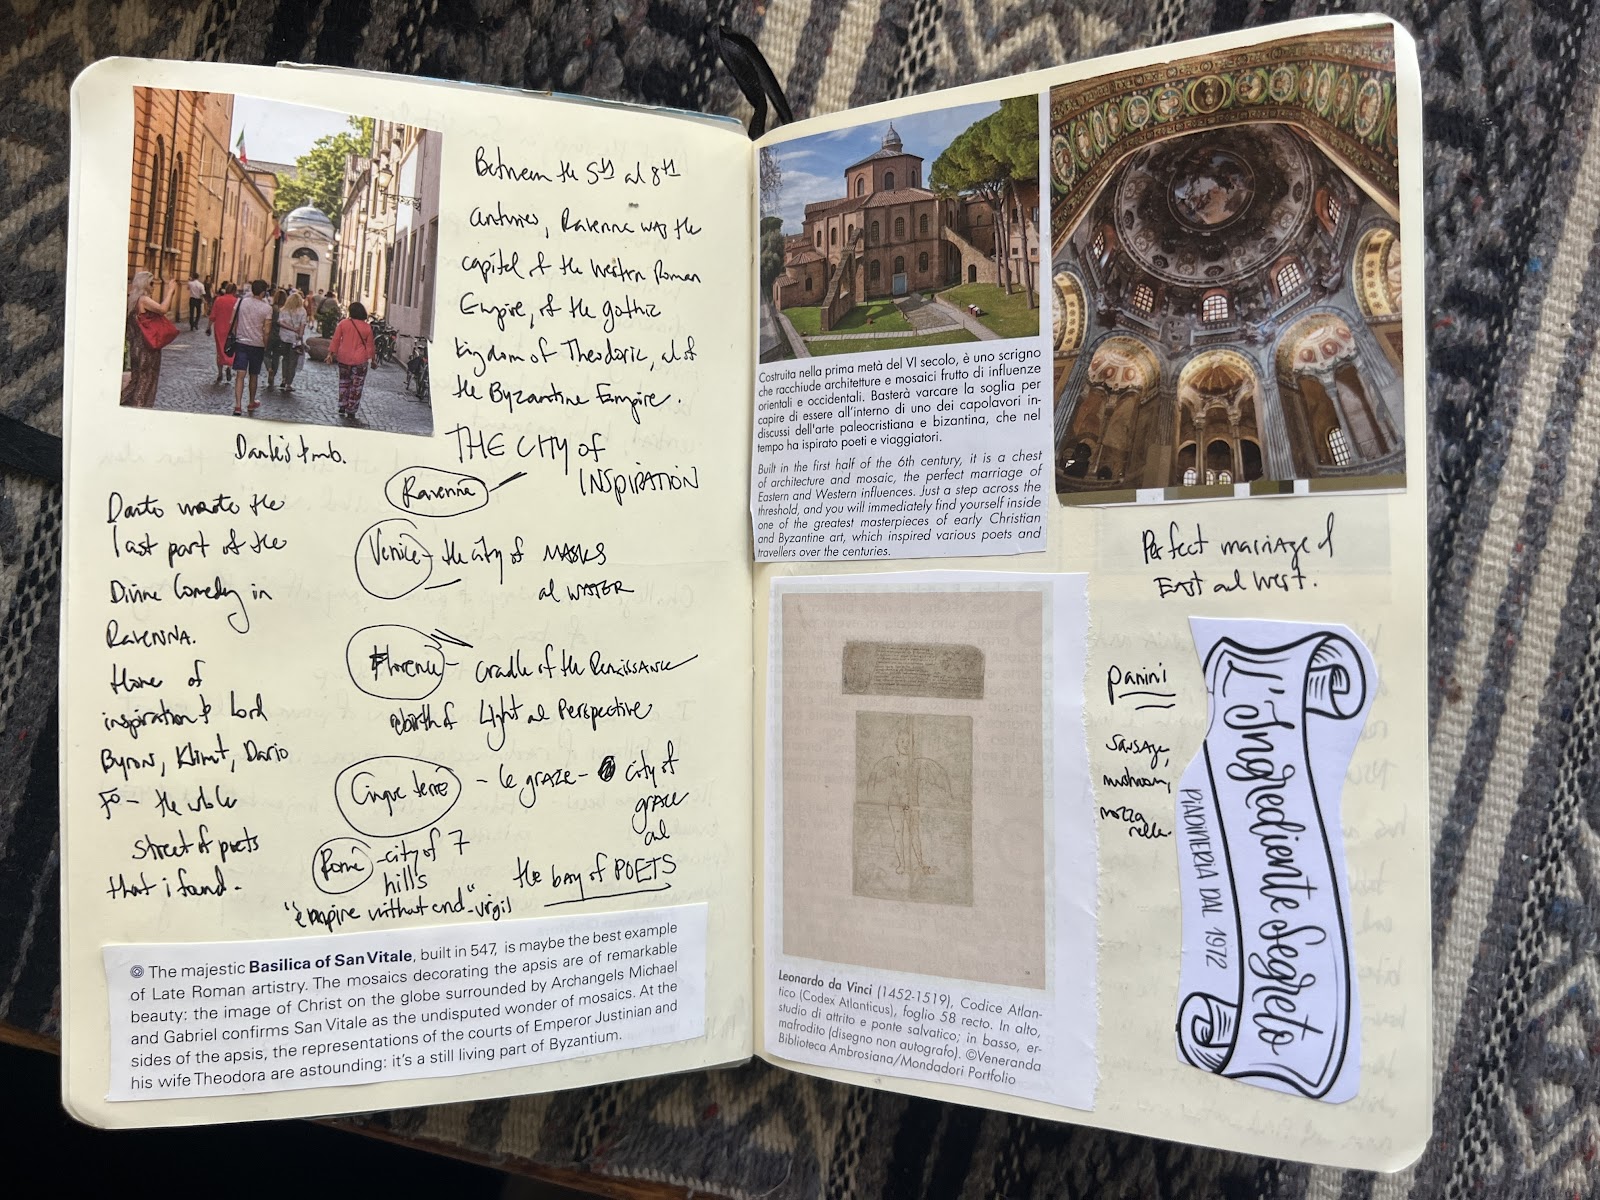 Between the 5th al 8th
centuries, Ravenna was the
capital of the Western Roman
Empire, of the gothic
kingdom of Theodoric, al of
the Byzantine Empire.
THE CITY of
INSPIRATION
Dante's tomb.
Ravenna
Dante wrote the
last part of the
Divine Comedy in
RAVENNA.
of
inspiration to Lord
Byron, Klimt, Dario
Fo - the whole
street of poets
that i found -
Venice - the city of MASKS
al WATER
Florence - cradle of the Renaissance
rebirth of Light al Perspective
Cinque terre - le graze - city of
grace
and
the bay of POETS
Rome - city of 7
hills
"empire without end" - virgil
The majestic Basilica of San Vitale, built in 547, is maybe the best example
of Late Roman artistry. The mosaics decorating the apsis are of remarkable
beauty: the image of Christ on the globe surrounded by Archangels Michael
and Gabriel confirms San Vitale as the undisputed wonder of mosaics. At the
sides of the apsis, the representations of the courts of Emperor Justinian and
his wife Theodora are astounding: it's a still living part of Byzantium.
Costruita nella prima metà del VI secolo, è uno scrigno
che racchiude architetture e mosaici frutto di influenze
orientali e occidentali. Basterà varcare la soglia per
capire di essere all'interno di uno dei capolavori in-
discussi dell'arte paleocristiana e bizantina, che nel
tempo ha ispirato poeti e viaggiatori.
Built in the first half of the 6th century, it is a chest
of architecture and mosaic, the perfect marriage of
Eastern and Western influences. Just a step across the
threshold, and you will immediately find yourself inside
one of the greatest masterpieces of early Christian
and Byzantine art, which inspired various poets and
travellers over the centuries.
Perfect marriage of
EAST and West.
Leonardo da Vinci (1452-1519), Codice Atlan-
tico (Codex Atlanticus), foglio 58 recto. In alto,
studio di attrito e ponte salvatico; in basso, er-
mafrodito (disegno non autografo). ©Veneranda
Biblioteca Ambrosiana/Mondadori Portfolio
panini
sausage,
mushroom,
mozza
rella.
L'Ingrediente Segreto
PIADINERIA DAL 1972